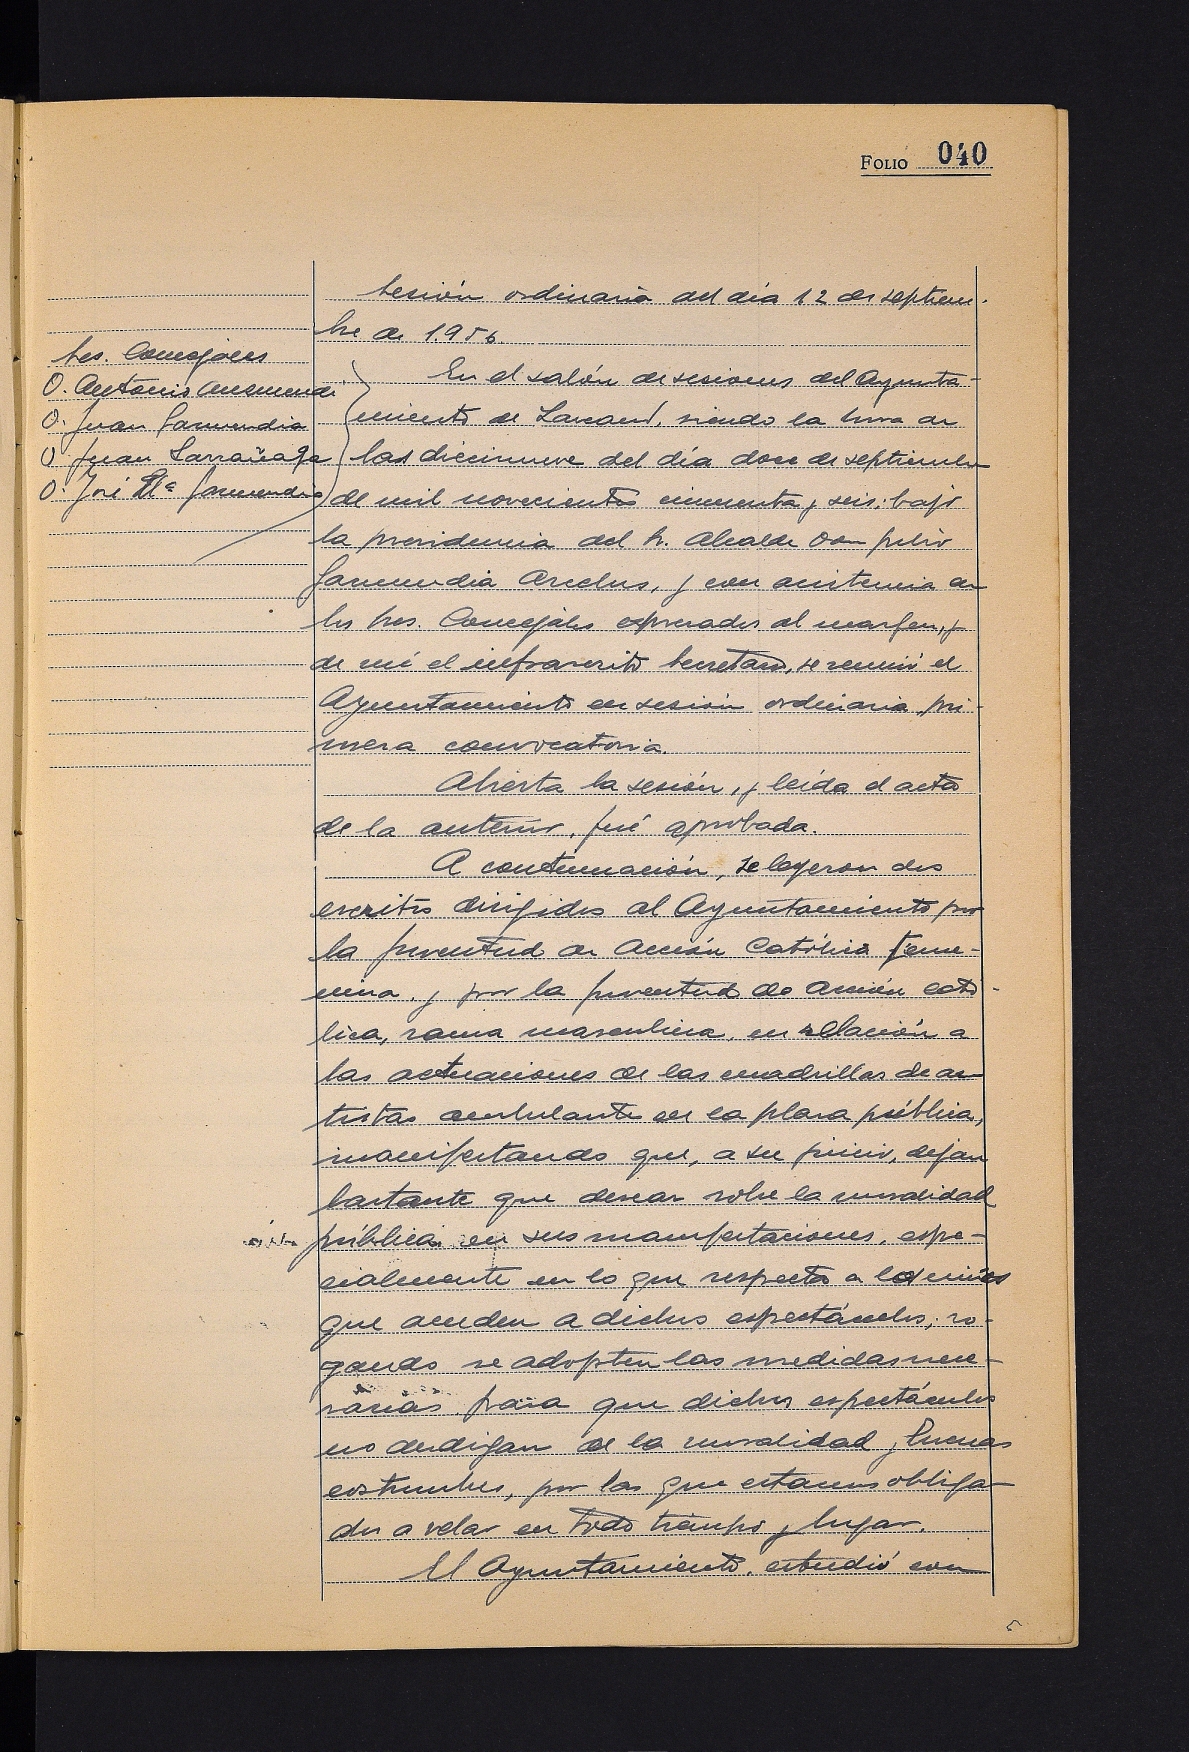 FOLIO 040
Sesión ordinaria del dia 12 de septiem-
bre de 1.956.
Sres. Concejales
D. Antonio
D. Juan Garmendia
D. Juan Larrañaga
D. José Mª Garmendia
En el salón de sesiones del Ayunta-
miento de Lazcano, siendo la hora de
las diecinueve del día doce de septiembre
de mil novecientos cincuenta y seis; bajo
la presidencia del Sr. Alcalde Don Julio
Garmendia Arcelus, y con asistencia de
los Sres. Concejales expresados al margen, y
de mí el infrascrito Secretario, se reunió el
Ayuntamiento en sesión ordinaria, pri-
mera convocatoria.
Abierta la sesión, y leída el acta
de la anterior, fué aprobada.
A continuación, se leyeron dos
escritos dirigidos al Ayuntamiento por
la Juventud de Acción Católica Feme-
nina, y por la Juventud de Acción cató-
lica, rama masculina, en relación a
las actuaciones de las cuadrillas de ar-
tistas ambulantes en la plaza pública,
manifestando que, a su juicio, dejan
bastante que desear sobre la moralidad
pública en sus manifestaciones, espe-
cialmente en lo que respecta a los niños
que acuden a dichos espectáculos; ro-
gando se adopten las medidas nece-
sarias para que dichos espectáculos
no desdigan de la moralidad y buenas
costumbres, por las que estamos obliga-
dos a velar en todo tiempo y lugar.
El Ayuntamiento, estudió con